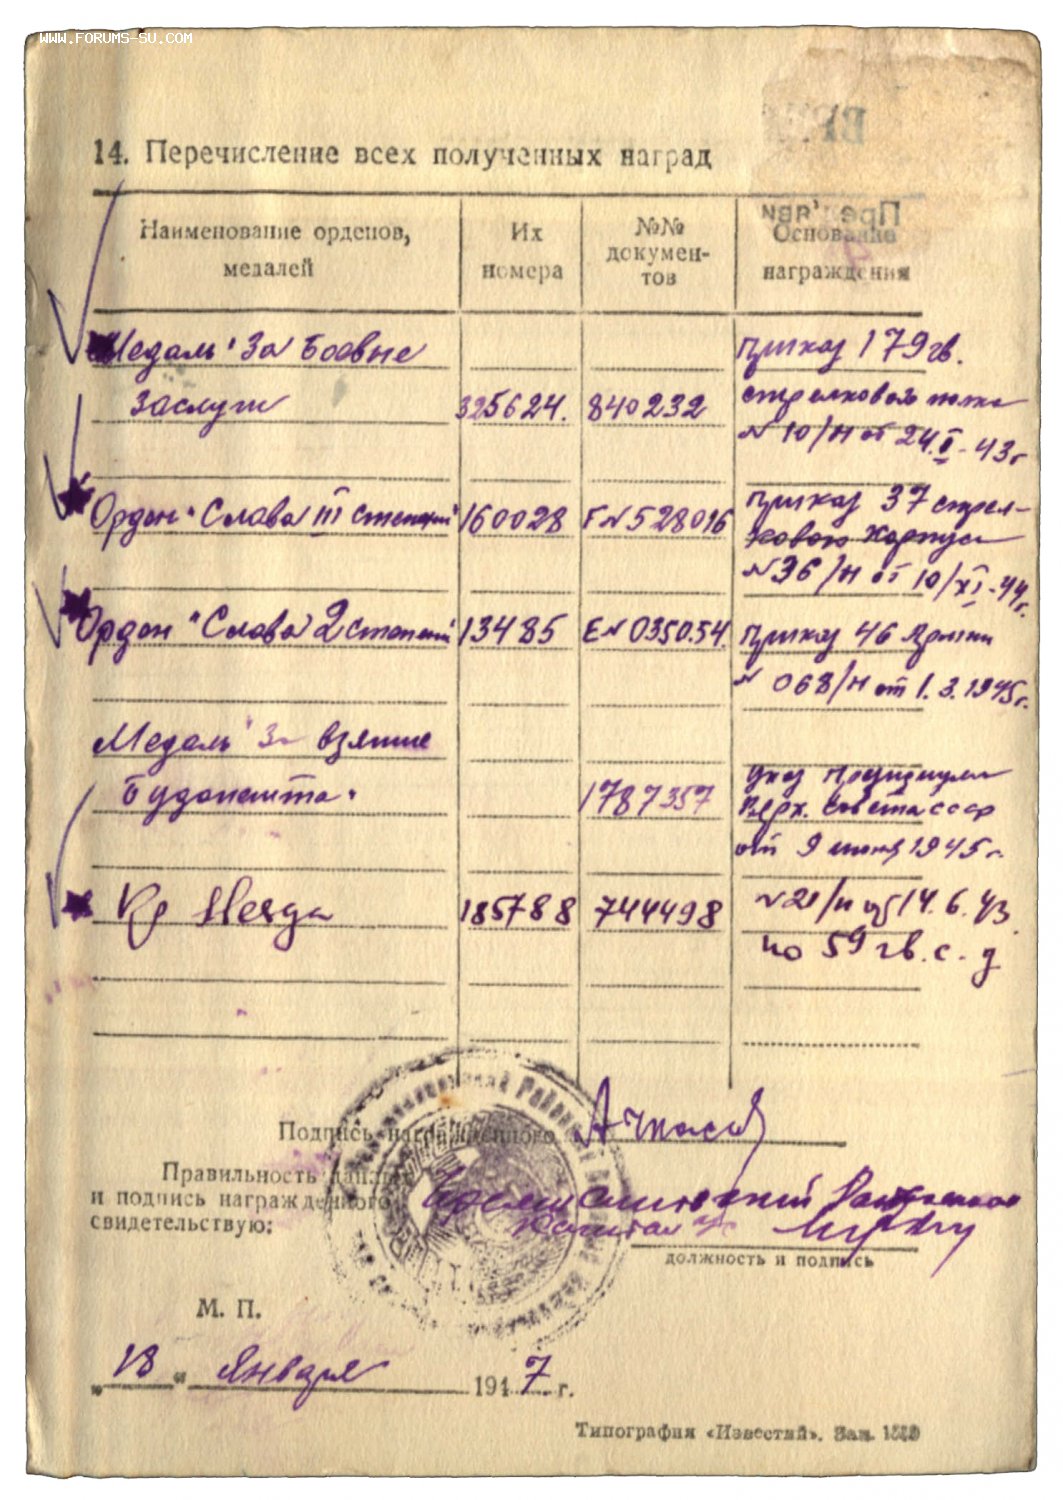 WWW.FORUMS-SU.COM
14. Перечисление всех полученных наград
Наименование орденов, медалей
Их номера
№№ документов
Основание награждения
Медаль "За Боевые
Заслуги 325624. 840232
приказ 179 гв.
стрелкового полка
№ 10/н от 24.II-43г
Орден "Слава III степени" 160028 Г№528016
приказ 37 стрел-
кового Корпуса
№36/н от 10/XI-44г.
Орден "Слава 2 степени" 13485 Е№035054.
приказ 46 Армии
№ 068/н от 1.3.1945г.
Медаль "За взятие
Будапешта" 1787357
указ Президиума
Верх. Совета СССР
от 9 июня 1945г.
Кр Звезда 185788 744498
№21/н от 14.6.43
по 59 гв. с. д
Подпись награжденного
Правильность данных
и подпись награжденного
свидетельствую:
должность и подпись
М. П.
„18" Января 1947 г.
Типография «Известий». Зак.